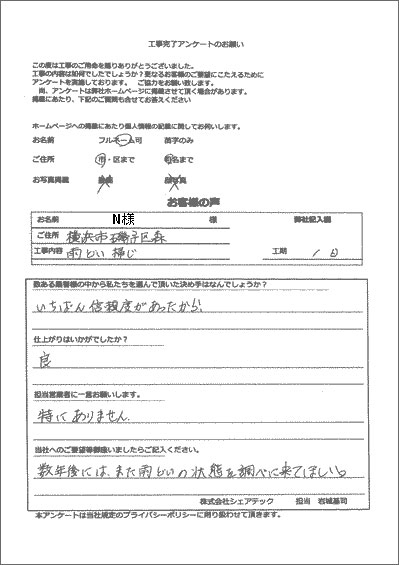 工事完了アンケートのお願い
この度は工事のご用命を賜りありがとうございました。
工事の内容は如何でしたでしょうか?更なるお客様のご要望にこたえるために
アンケートを実施しております。 ご協力をお願い致します。
尚、アンケートは弊社ホームページに掲載させて頂く場合があります。
掲載にあたり、下記のご質問も合せてお答えください
ホームページへの掲載にあたり個人情報の記載に関してお伺いします。
お名前 フルネーム可 苗字のみ
ご住所 市・区まで 町名まで
お写真掲載
お客様の声
お名前 N様 様 弊社記入欄
ご住所 横浜市磯子区森
工事内容 雨どい掃じ 工期 1日
数ある業者様の中から私たちを選んで頂いた決め手はなんでしょうか?
いちばん信頼度があったから。
仕上がりはいかがでしたか?
良
担当営業者に一言お願いします。
特にありません。
当社へのご要望等御座いましたらご記入ください。
数年後には、また雨どいの状態を調べに来てほしい。
株式会社シェアテック 担当 岩城基司
本アンケートは当社規定のプライバシーポリシーに則り扱わせて頂きます。